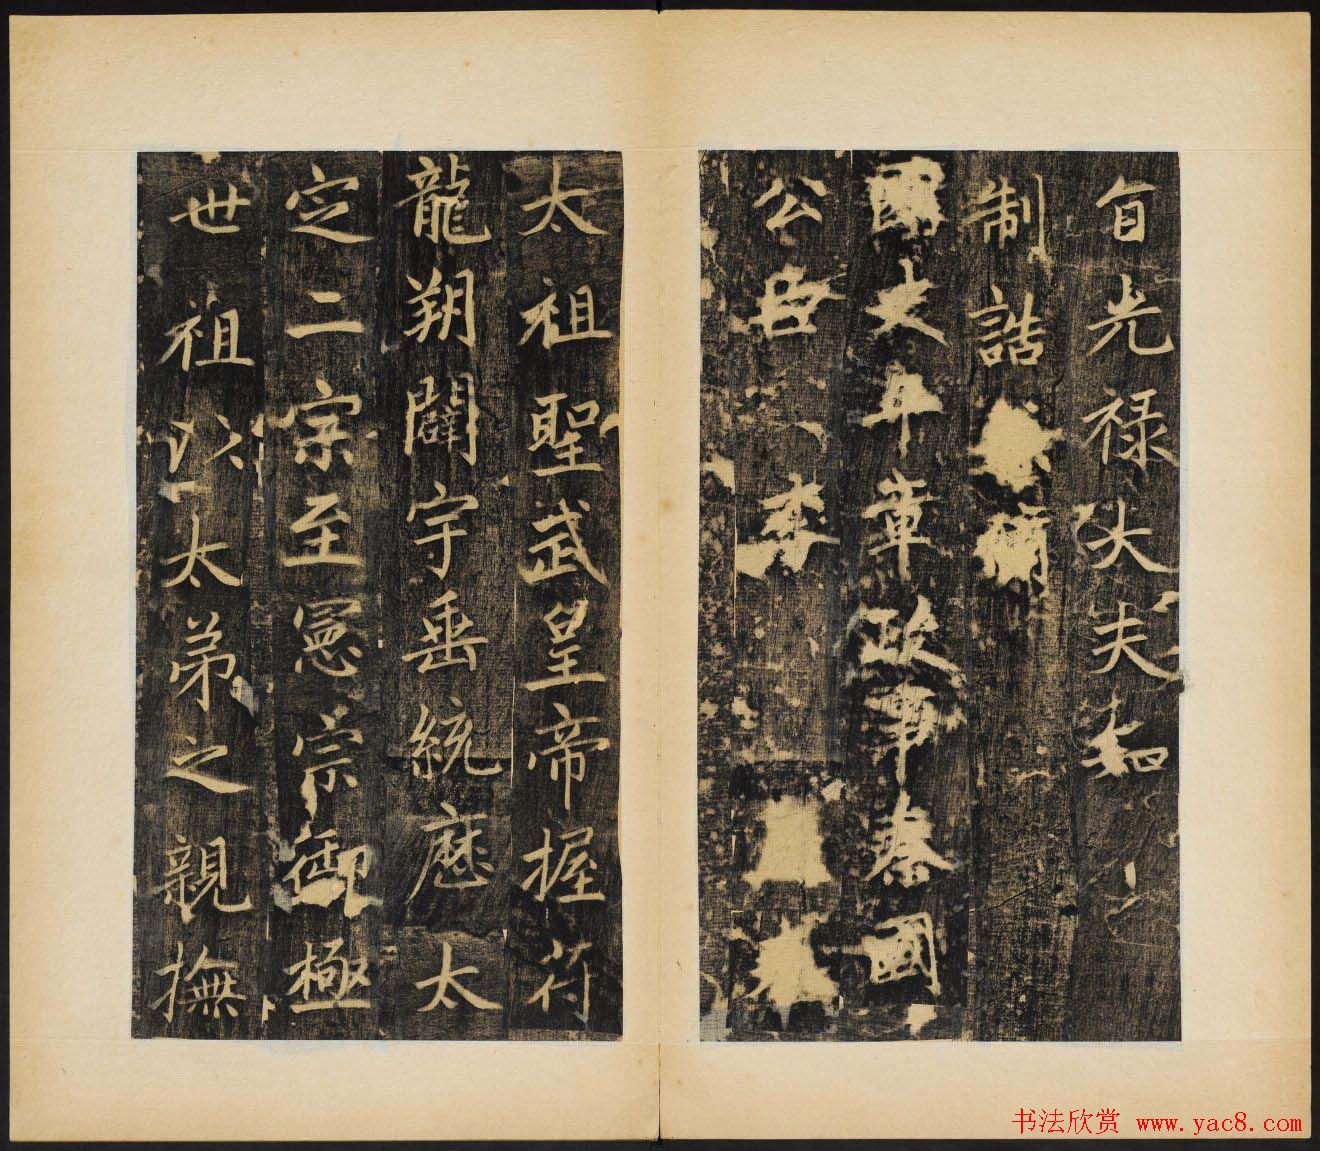 旨光禄大夫知
制誥兼脩
國史平章政事秦國
公臣李奉
太祖聖武皇帝握符
龍朔闢宇垂統歷太
定二宗至憲宗御極
世祖以太弟之親撫
书法欣赏 www.yac8.com